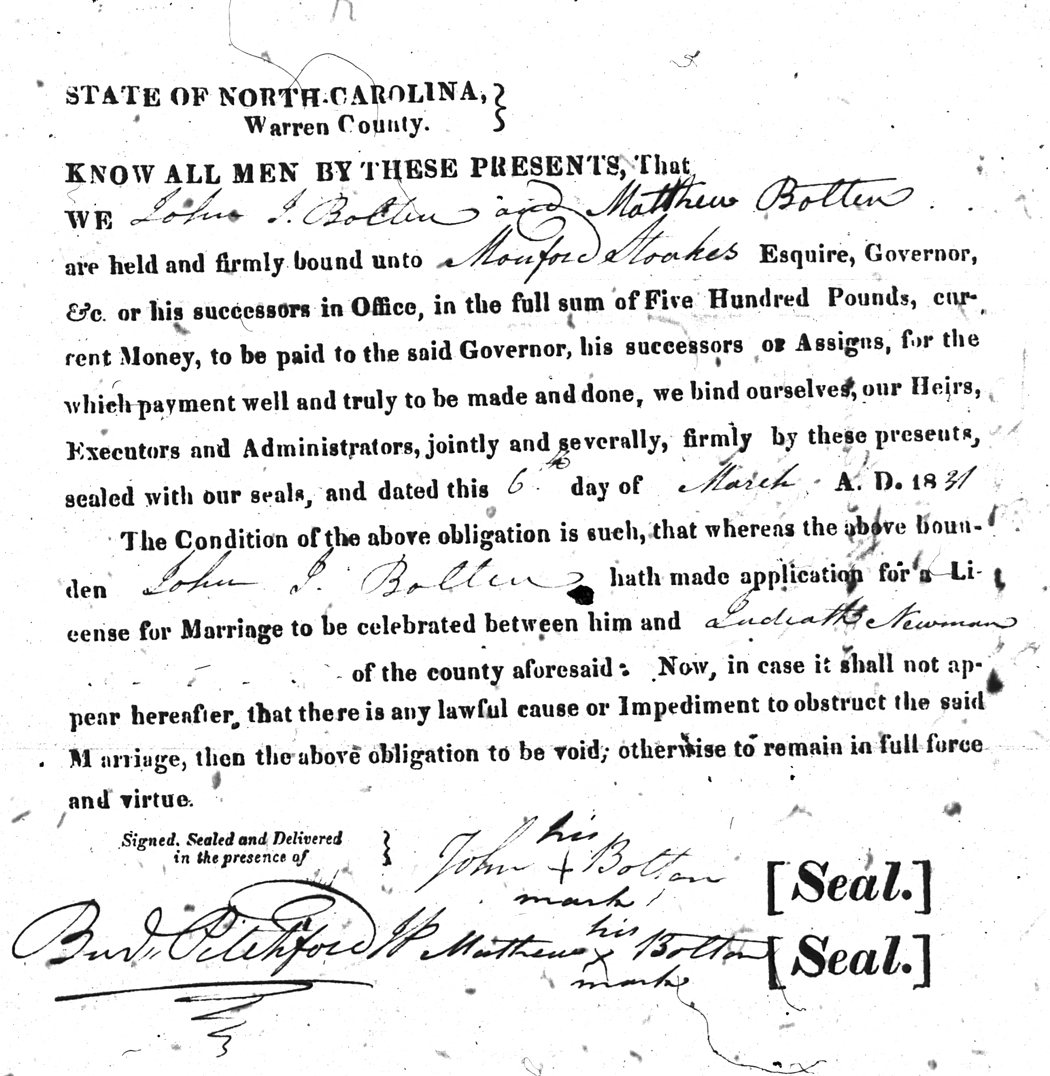 STATE OF NORTH-CAROLINA,
Warren County.
KNOW ALL MEN BY THESE PRESENTS, That
WE John J. Bolten and Matthew Bolten
are held and firmly bound unto Monford Stoakes Esquire, Governor,
&c. or his successors in Office, in the full sum of Five Hundred Pounds, cur-
rent Money, to be paid to the said Governor, his successors or Assigns, for the
which payment well and truly to be made and done, we bind ourselves, our Heirs,
Executors and Administrators, jointly and severally, firmly by these presents,
sealed with our seals, and dated this 6th day of March A. D. 1831
The Condition of the above obligation is such, that whereas the above boun-
den John J. Bolten hath made application for a Li-
cense for Marriage to be celebrated between him and Newman
of the county aforesaid: Now, in case it shall not ap-
pear hereafter, that there is any lawful cause or Impediment to obstruct the said
Marriage, then the above obligation to be void; otherwise to remain in full force
and virtue.
Signed, Sealed and Delivered
in the presence of
his
John + Bolton [Seal.]
mark
his
Pitchford JP Mathew x Bolton [Seal.]
mark